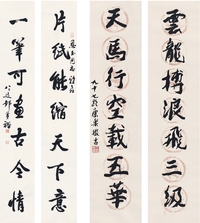 雲龍搏浪飛三級
天馬行空載五華
片紙能縮天下意
一筆可畫古今情